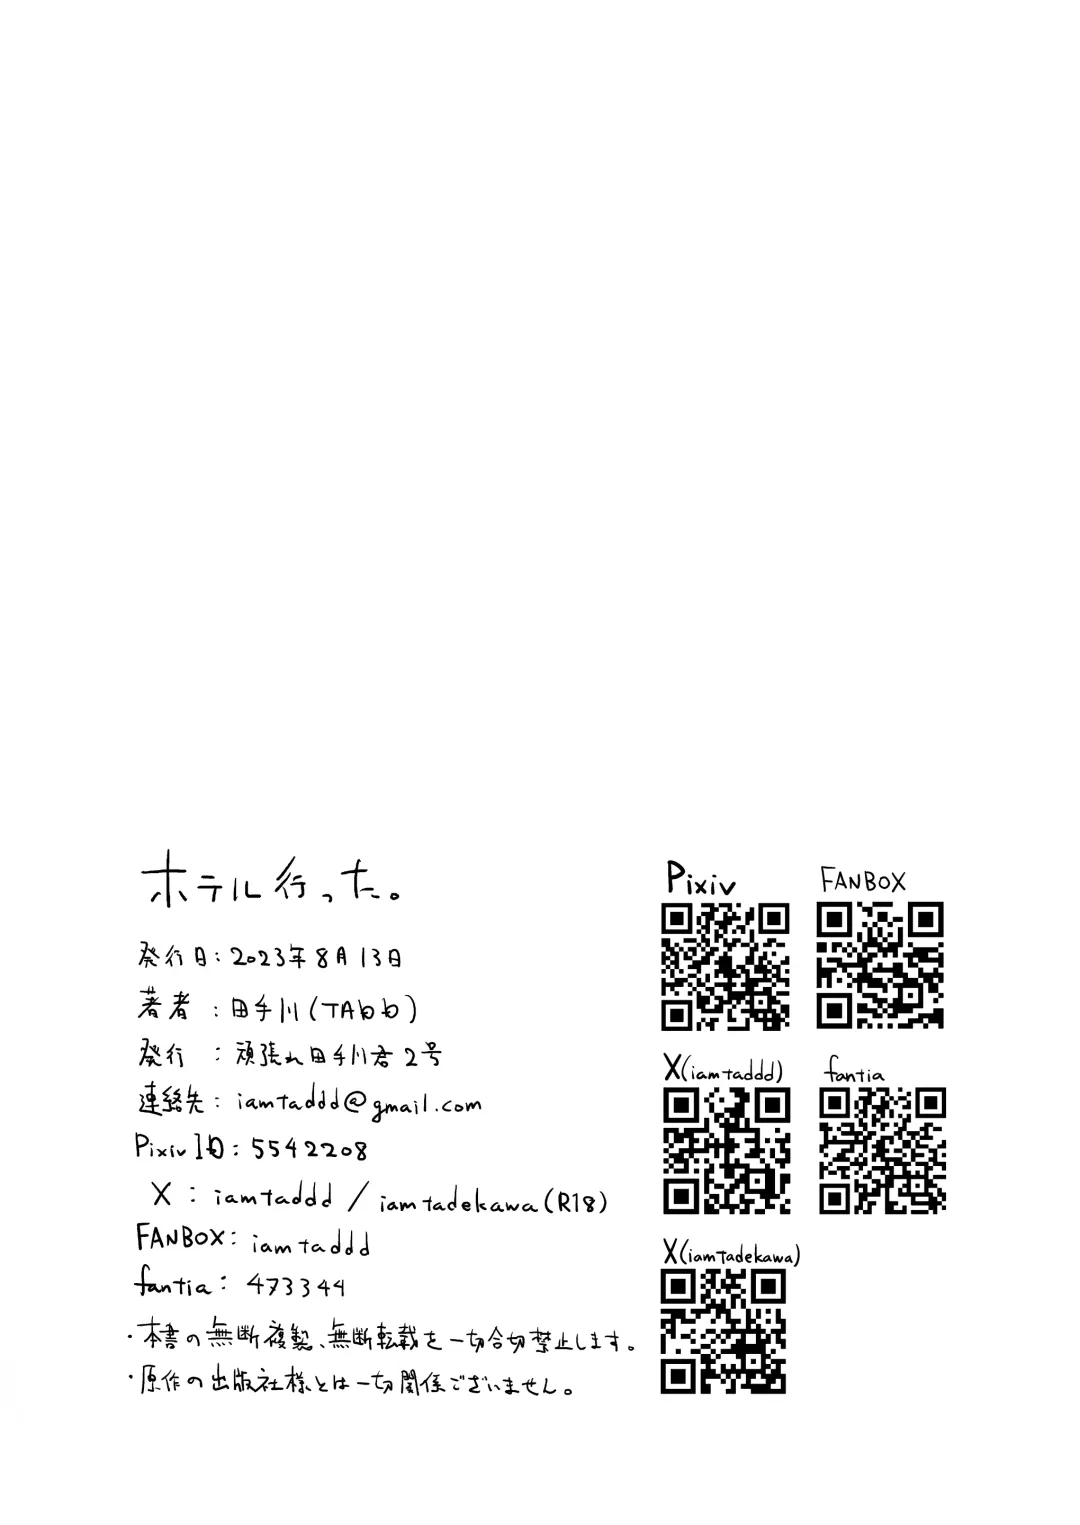 ホテル行った。
発行日：2023年8月13日
著者 ：田手川(TAbb)
発行 ：頑張れ田手川君2号
連絡先：iamtaddd@gmail.com
Pixiv ID：5542208
X：iamtaddd / iamtadekawa(R18)
FANBOX：iamtaddd
fantia：473344
・本書の無断複製、無断転載を一切合切禁止します。
・原作の出版社様とは一切関係ございません。
Pixiv
FANBOX
X(iamtaddd)
fantia
X(iamtadekawa)